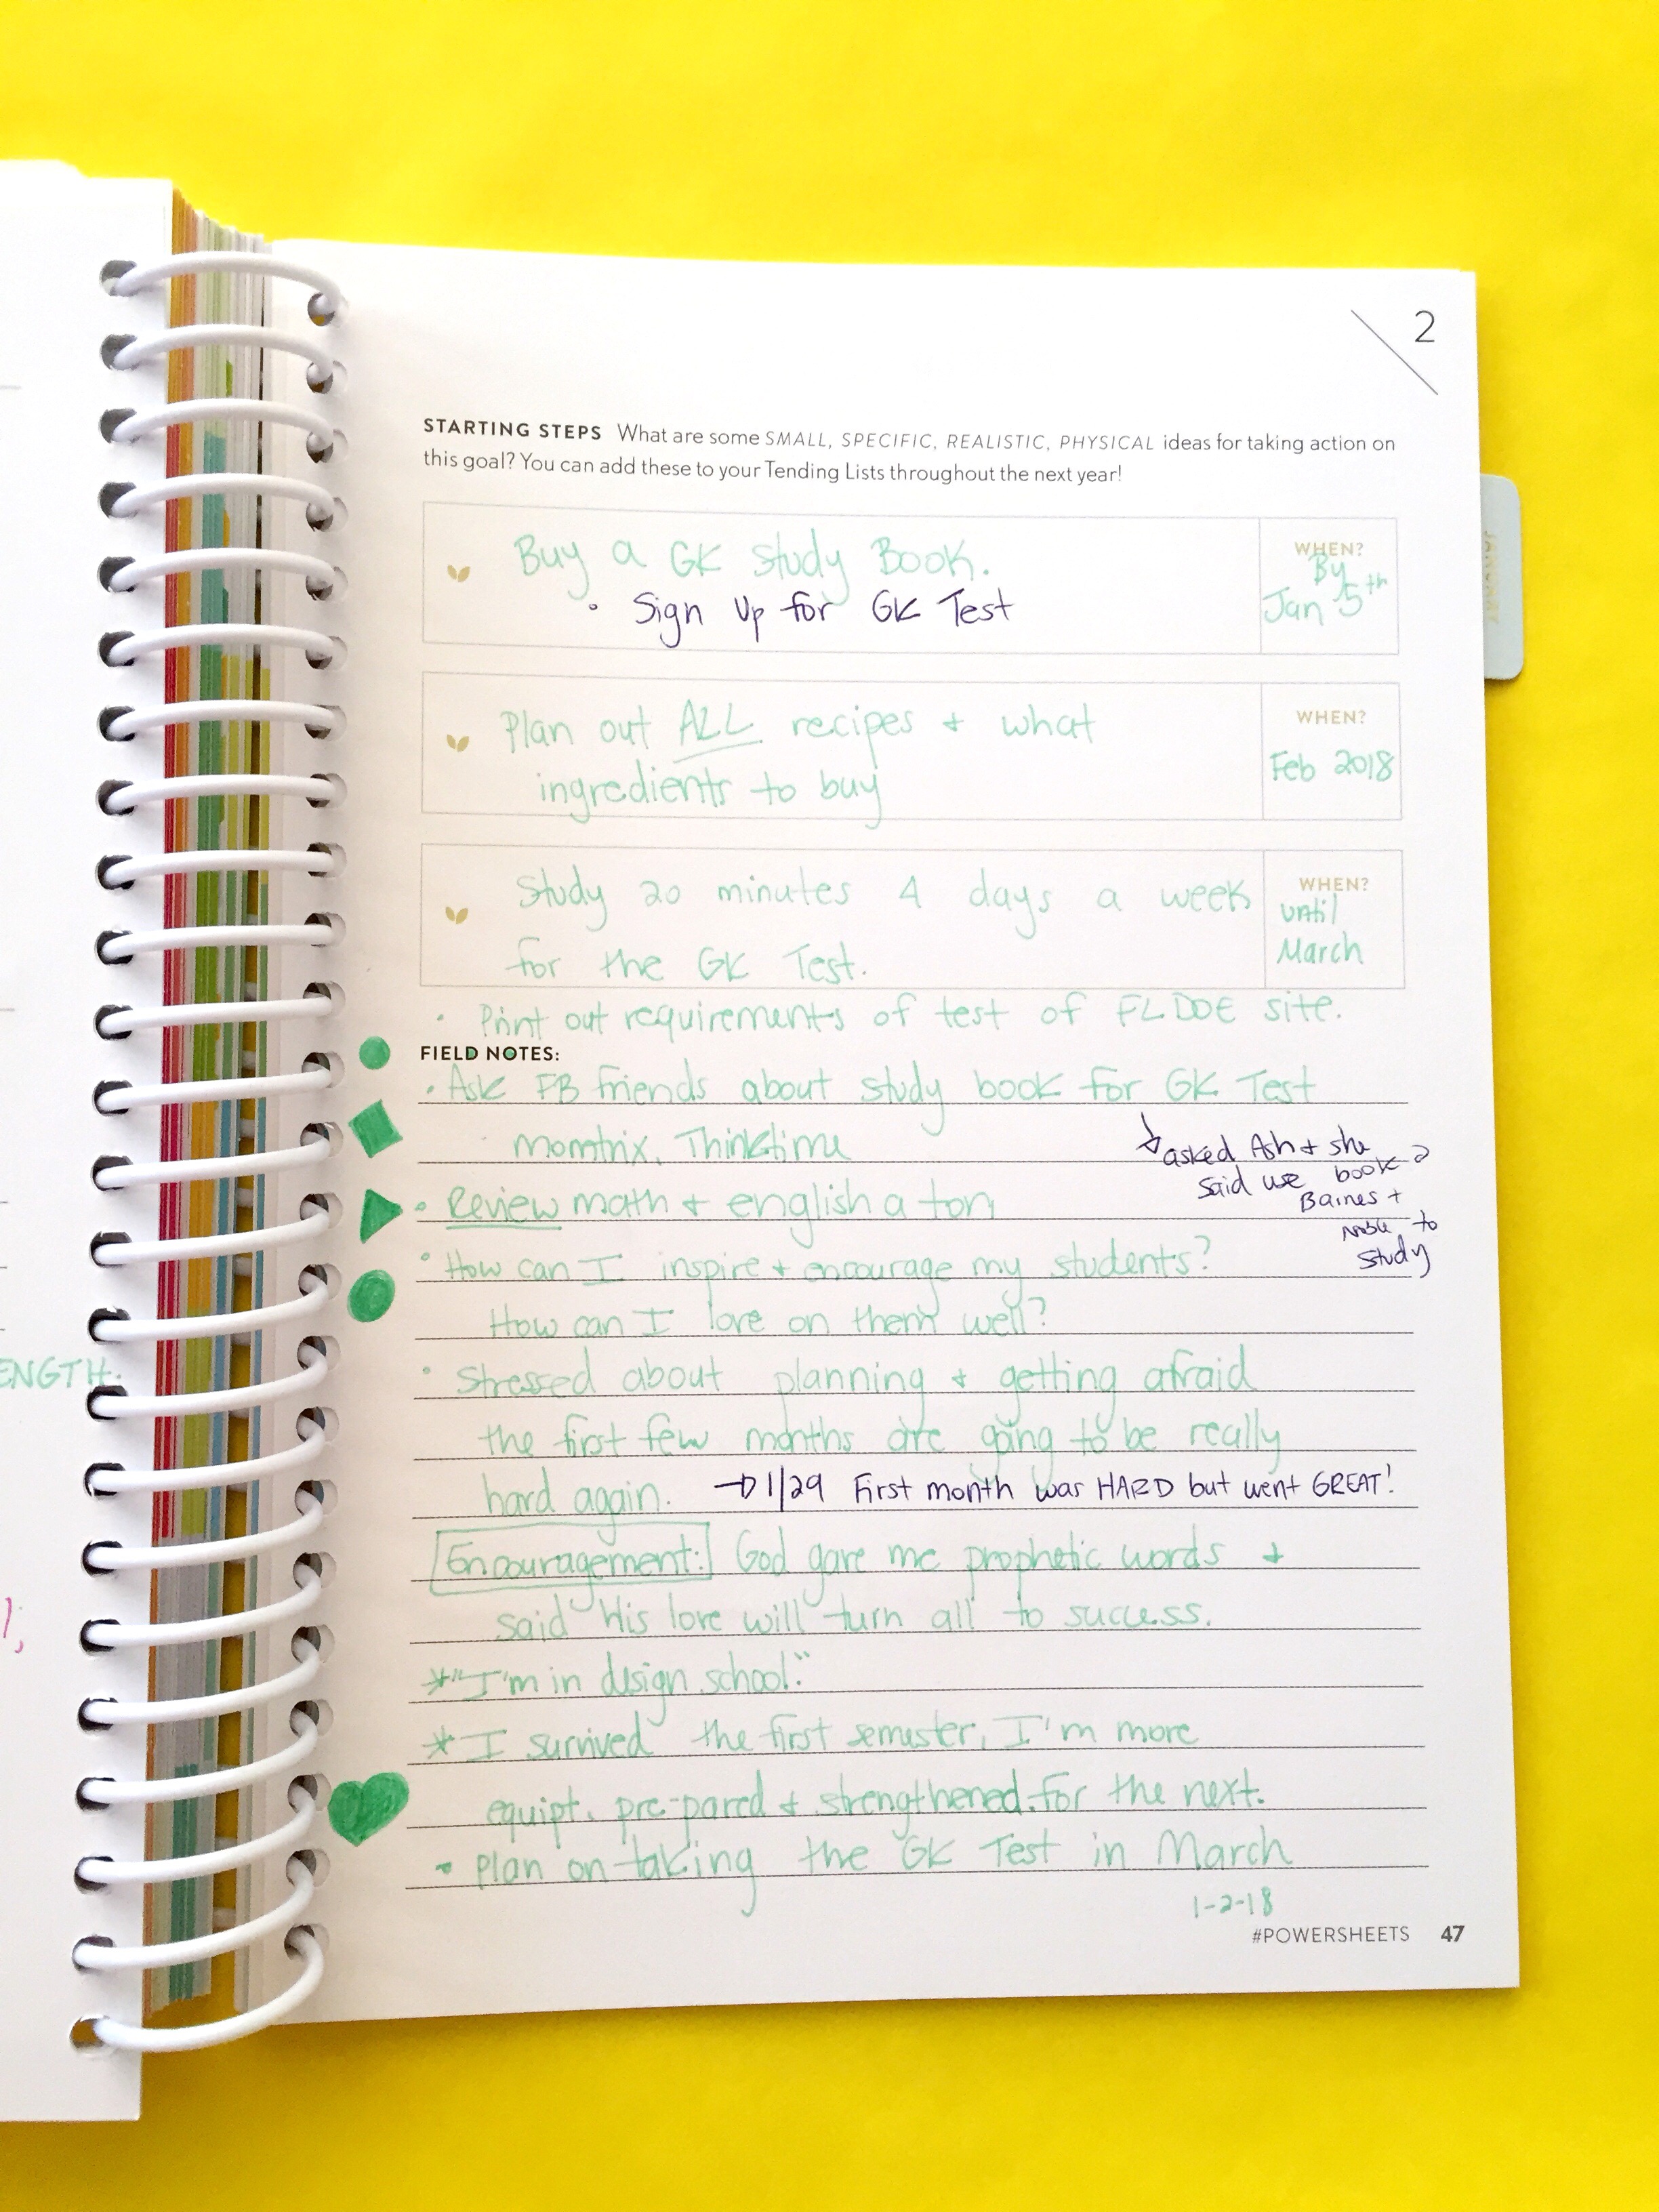 2
STARTING STEPS What are some SMALL, SPECIFIC, REALISTIC, PHYSICAL ideas for taking action on
this goal? You can add these to your Tending Lists throughout the next year!
Buy a GK Study Book.
• Sign Up for GK Test
WHEN?
By
Jan 5th
Plan out ALL recipes + what
ingredients to buy
WHEN?
Feb 2018
Study 20 minutes 4 days a week
for the GK Test.
WHEN?
until
March
• Print out requirements of test of FLDOE site.
FIELD NOTES:
• Ask FB friends about study book for GK Test
momtrix, Thinktime
asked Ash + she
said use book
Baines +
Noble to
Study
• Review math + english a ton
• How can I inspire + encourage my students?
How can I love on them well?
• Stressed about planning + getting afraid
the first few months are going to be really
hard again. → 1/29 First month was HARD but went GREAT!
Encouragement: God gave me prophetic words +
said His love will turn all to success.
* "I'm in design school."
* I survived the first semester, I'm more
equipt, pre-pared + strengthened for the next.
• Plan on taking the GK Test in March
1-2-18
#POWERSHEETS 47
JANUARY
ENGTH.